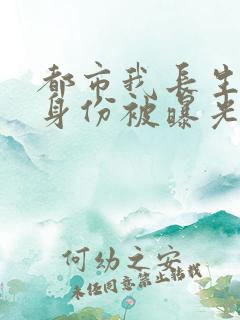 都市我長生
身份被曝光
何幼之安
未经同意禁止转载